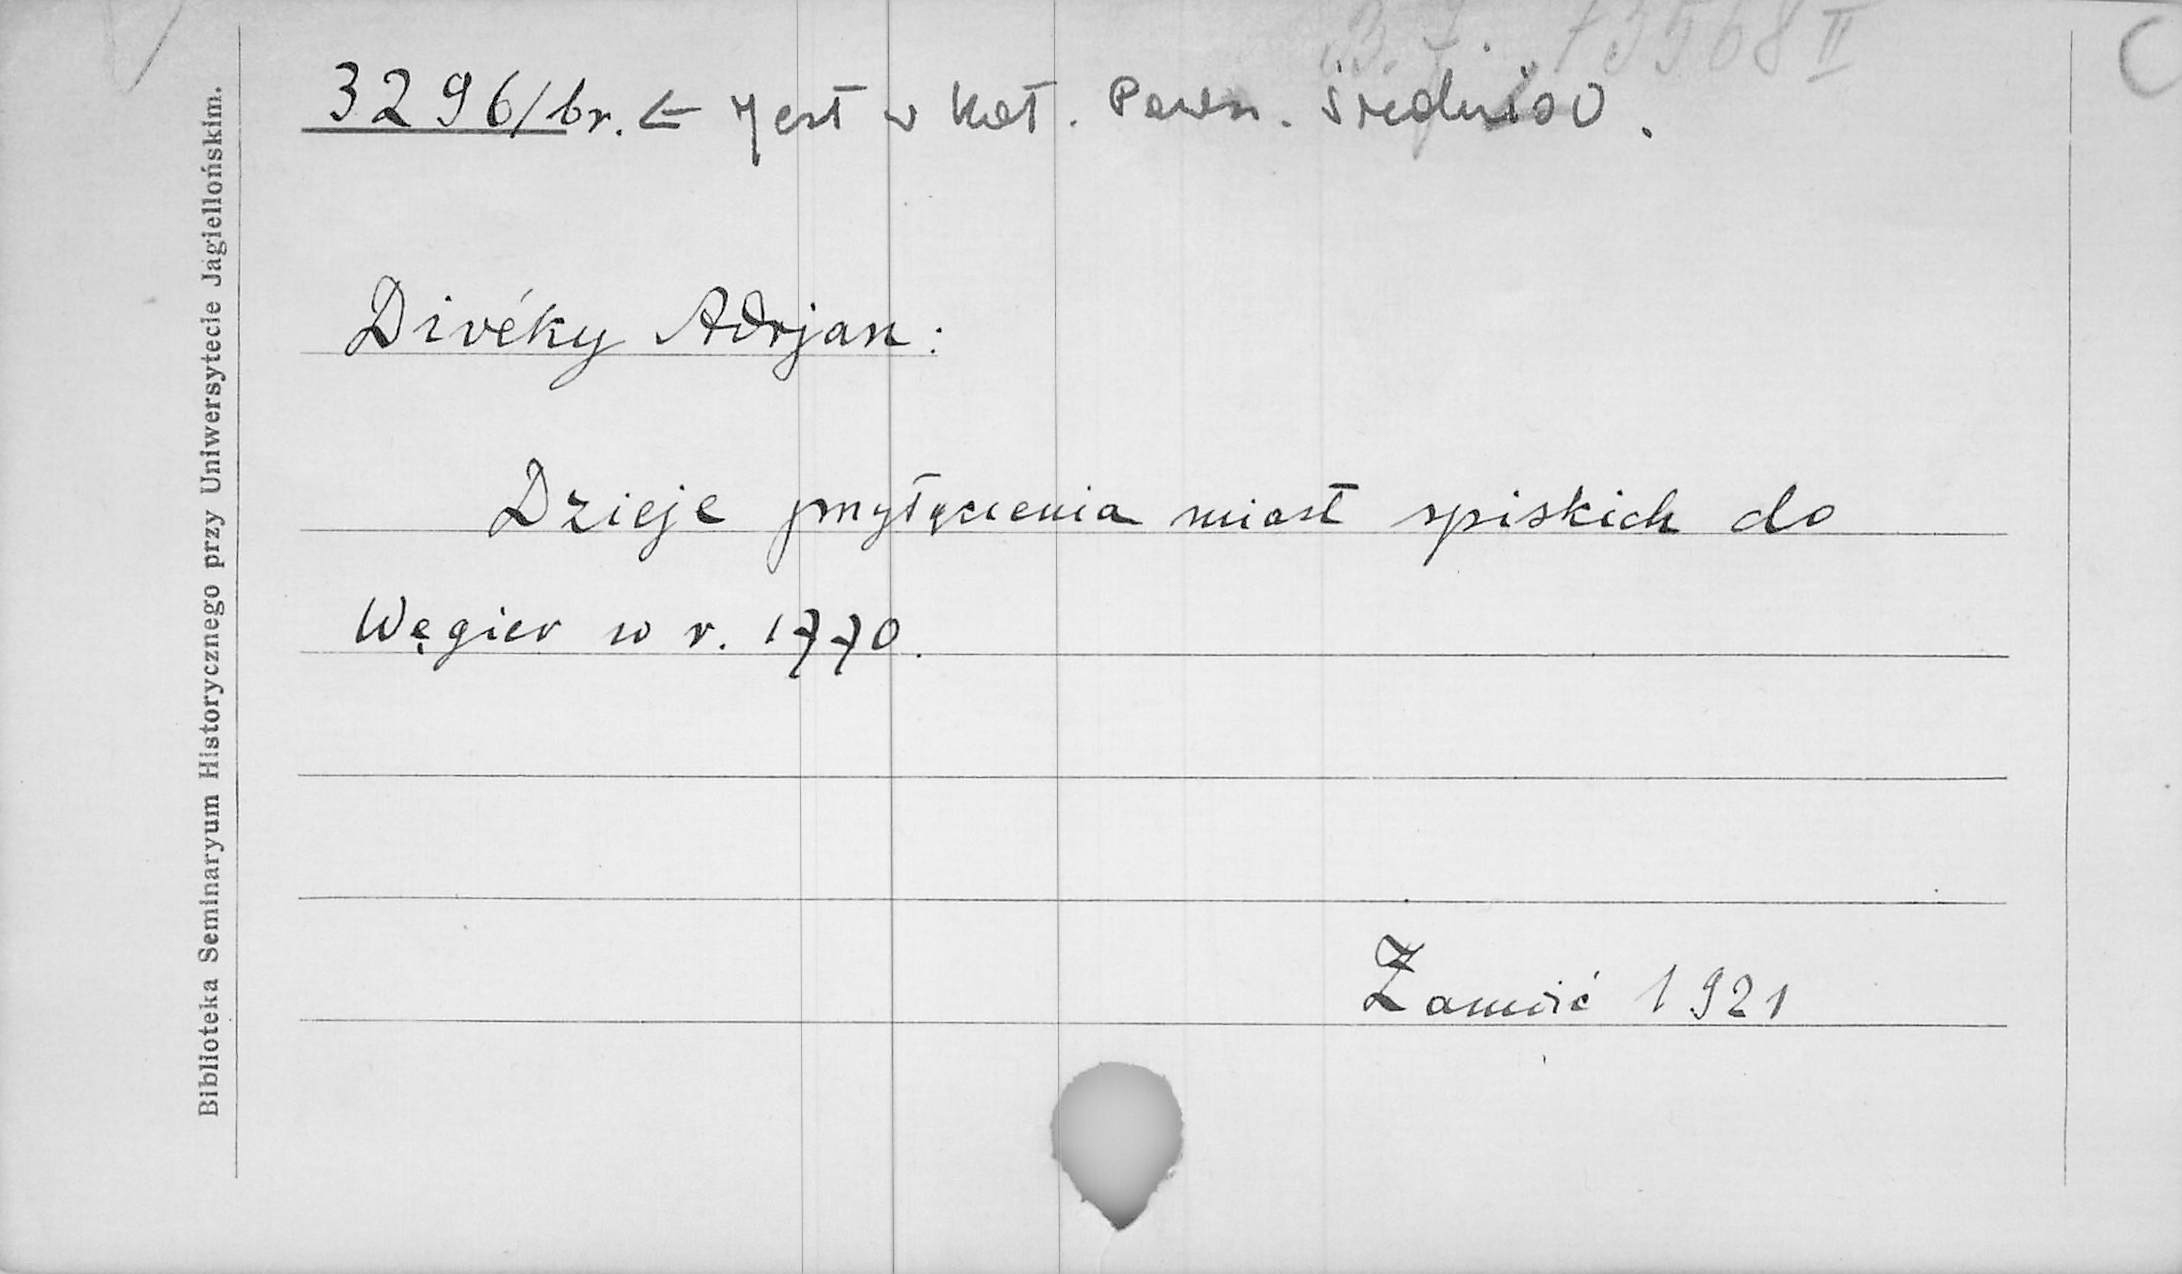 B.J. 73568 II
3296/br. ← Jest w Kat. Pawsz. średniow.
Divéky Adrjan:
Dzieje przyłączenia miast spiskich do
Węgier w r. 1770.
Zamość 1921
Biblioteka Seminaryum Historycznego przy Uniwersytecie Jagiellońskim.